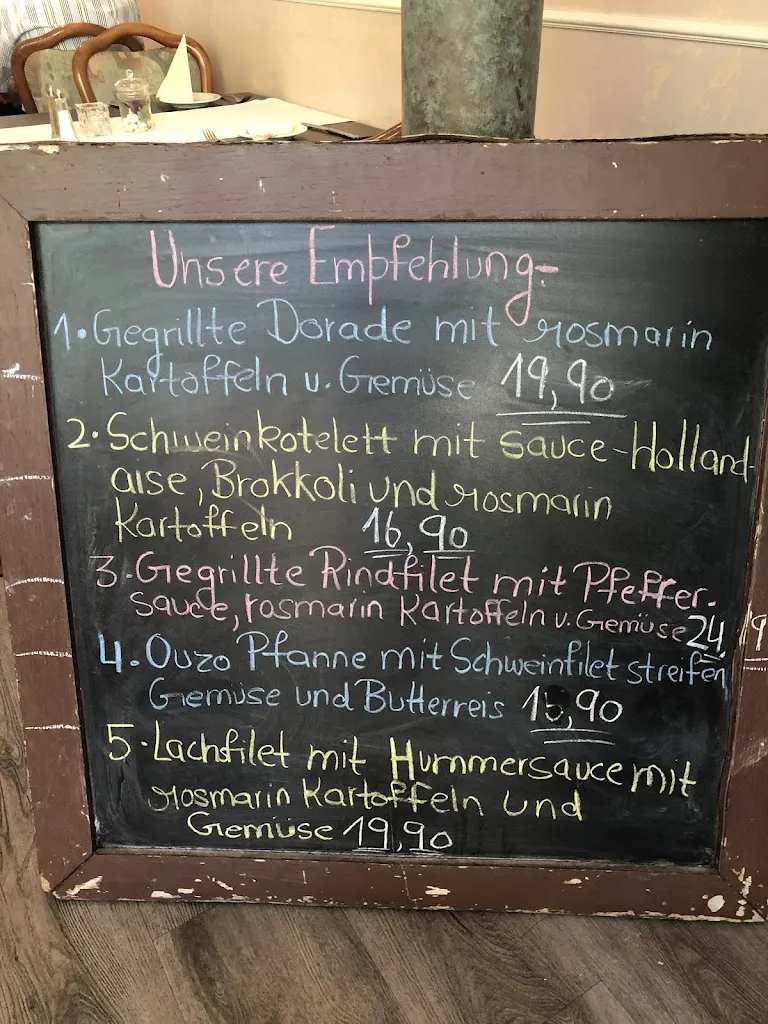 Unsere Empfehlung:
1. Gegrillte Dorade mit rosmarin
Kartoffeln u. Gemüse 19,90
2. Schweinkotelett mit sauce-Holland-
aise, Brokkoli und rosmarin
Kartoffeln 16,90
3. Gegrillte Rindfilet mit Pfeffer-
sauce, rosmarin Kartoffeln u. Gemüse 24,9
4. Ouzo Pfanne mit Schweinfilet streifen
Gemüse und Butterreis 15,90
5. Lachsfilet mit Hummersauce mit
rosmarin Kartoffeln und
Gemüse 19,90